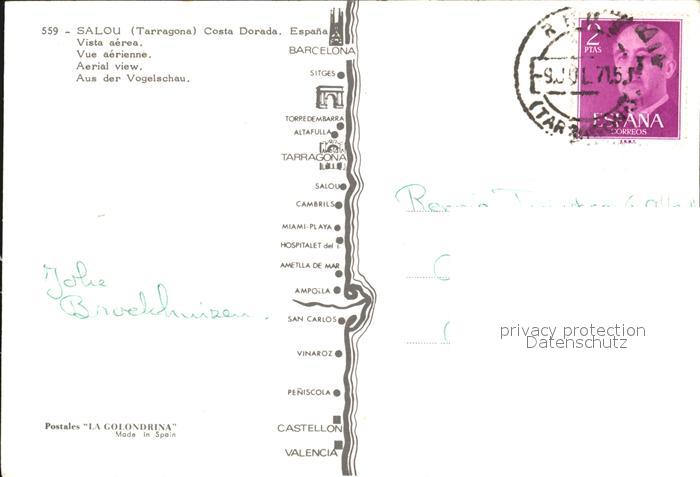 559 - SALOU (Tarragona) Costa Dorada. España
Vista aérea.
Vue aérienne.
Aerial view.
Aus der Vogelschau.
BARCELONA
SITGES
TORREDEMBARRA
ALTAFULLA
TARRAGONA
SALOU
CAMBRILS
MIAMI-PLAYA
HOSPITALET del I.
AMETLLA DE MAR
AMPOLLA
SAN CARLOS
VINAROZ
PEÑISCOLA
CASTELLON
VALENCIA
Broekhuizen.
Postales "LA GOLONDRINA"
Made in Spain
2
PTAS
ESPAÑA
CORREOS
-9 JUL. 71
(TAR
privacy protection
Datenschutz